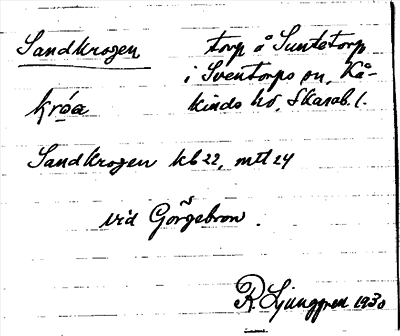 Sandkrogen torp å Suntetorp
i Sventorps sn, Kå-
kinds hd, Skarab. l.
krɷa
Sandkrogen kb 22, mtl 24
vid Görgebron.
R Ljunggren 1930